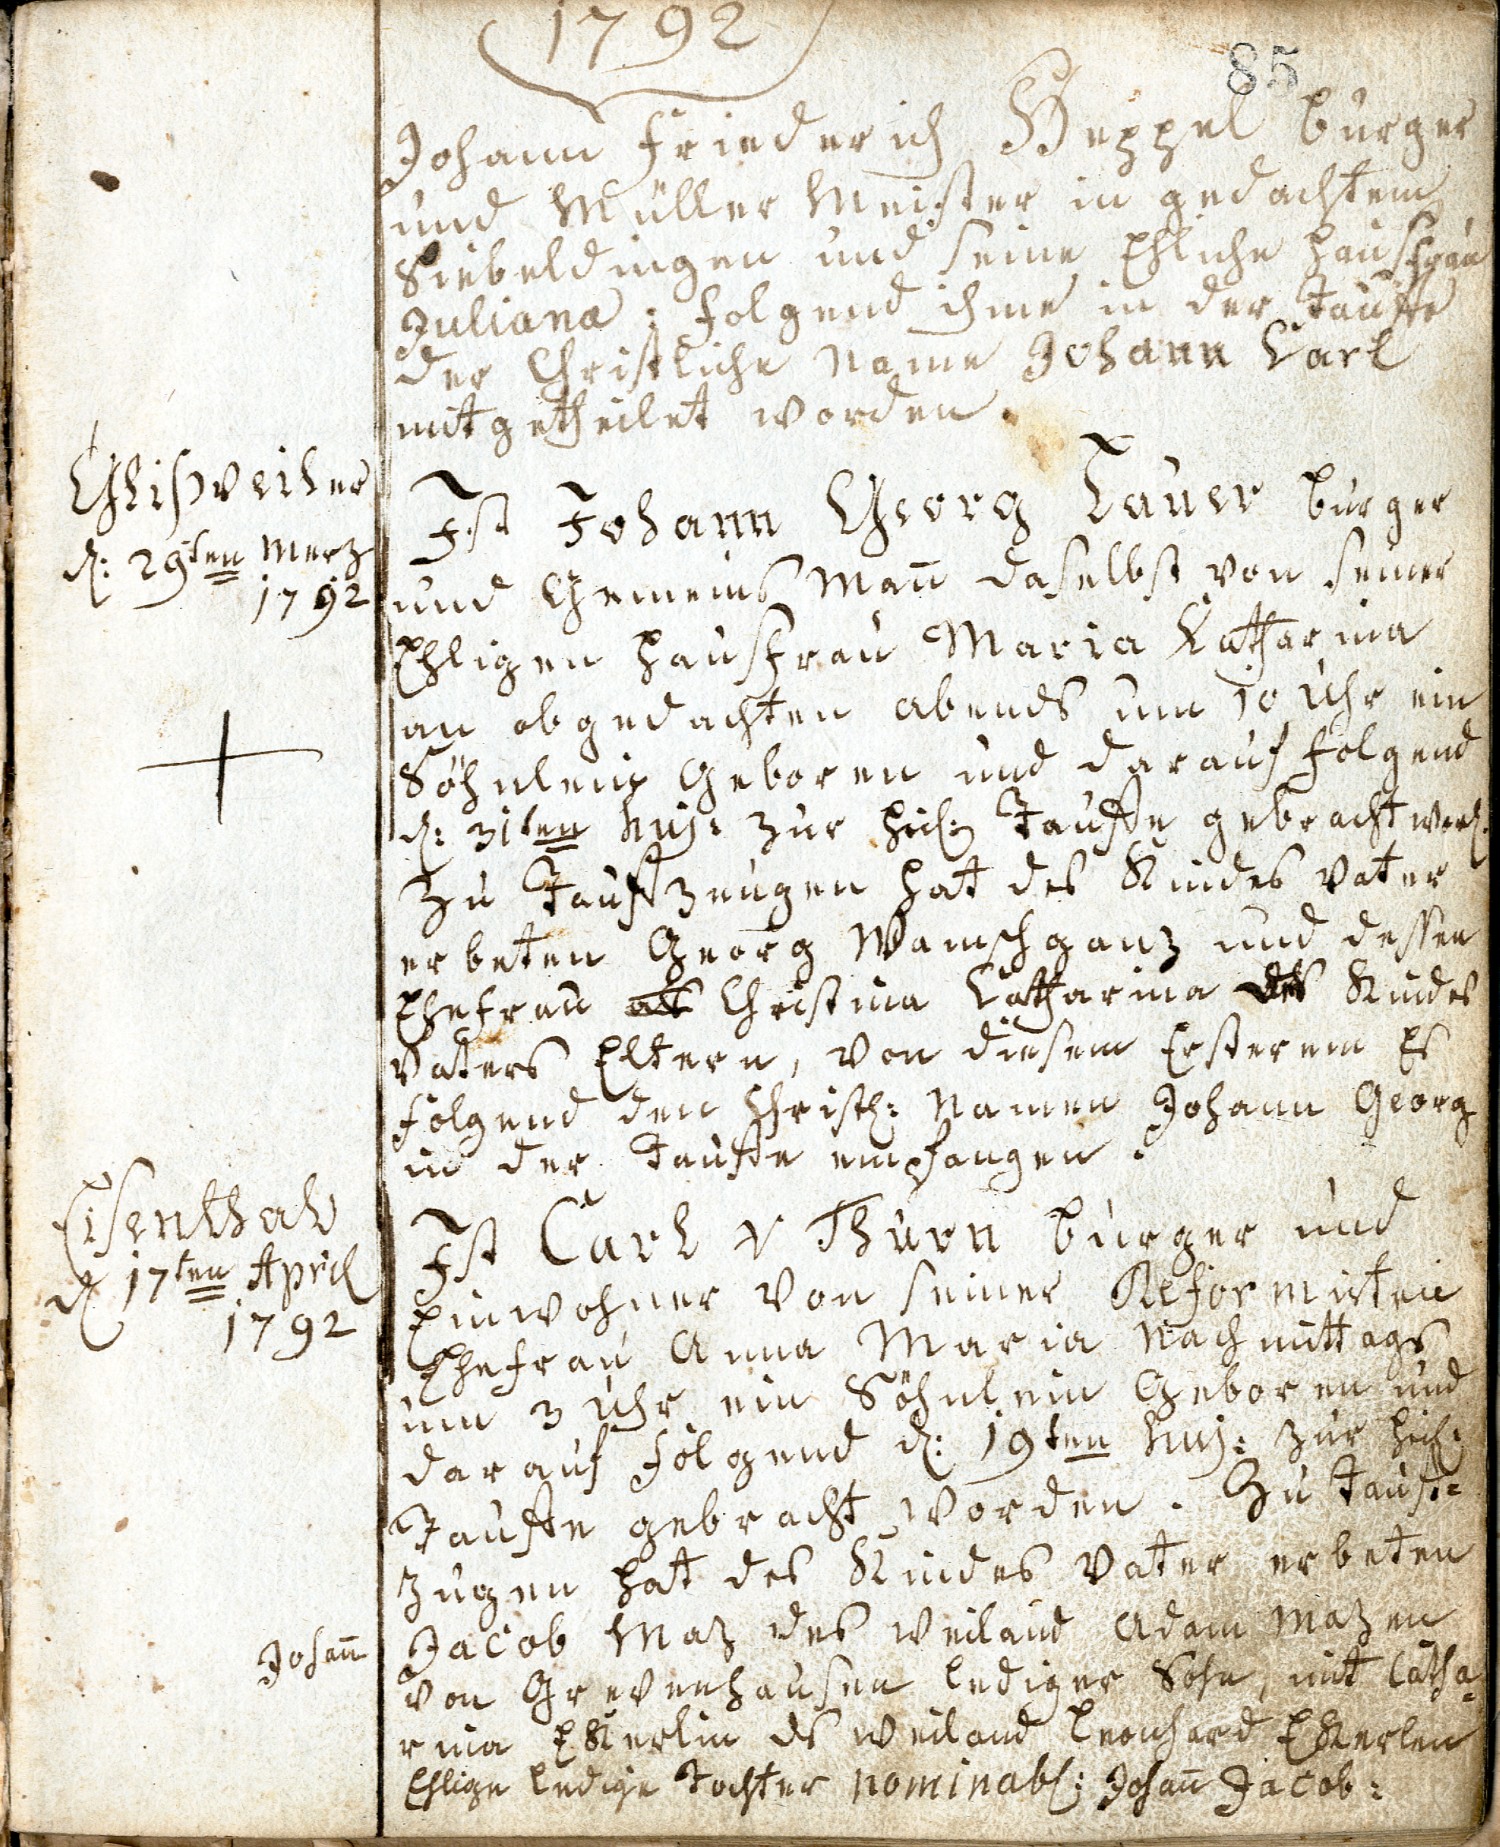 1792
85
Johann Friederich Heppel burger
und Müller Meister in gedachtem
Siebeldingen und seine Ehliche Hausfrau
Juliana: folgend ihme in der Tauffe
der Christliche Name Johann Carl
mitgetheilet worden.
Gleisweiler
d: 29ten Merz
1792
Ist Johann Georg Lauer burger
und Gemeins Mañ daselbst von seiner
Ehligen Hausfrau Maria Katharina
an obgedachten abends um 10 Uhr ein
Söhnlein Geboren und darauf folgend
d: 31ten huj: zur heil: Tauffe gebracht word:
Zu Taufzeugen hat des Kindes Vater
erbeten Georg Wamschganz und dessen
Ehefrau Christina Catharina des Kindes
Vaters Eltern, von diesem Ersterem Es
folgend den Christl: Namen Johann Georg
in der Tauffe empfangen.
Eisenthal
d 17ten April
1792
Ist Carl v Thurn burger und
Einwohner von seiner Reformirten
Ehefrau Anna Maria Nachmittags
um 3 Uhr ein Söhnlein Geboren und
darauf folgend d: 19ten huj: zur heil:
Tauffe gebracht worden. Zu Tauf=
zeugen hat des Kindes Vater erbeten
Johañ
Jacob Maz des weiland Adam Mazen
von Grevenhausen lediger Sohn, mit Catha=
rina Ekerlin ds weiland Leonhard Ekerlen
Ehlige ledige Tochter nominabl: Johañ Jacob: